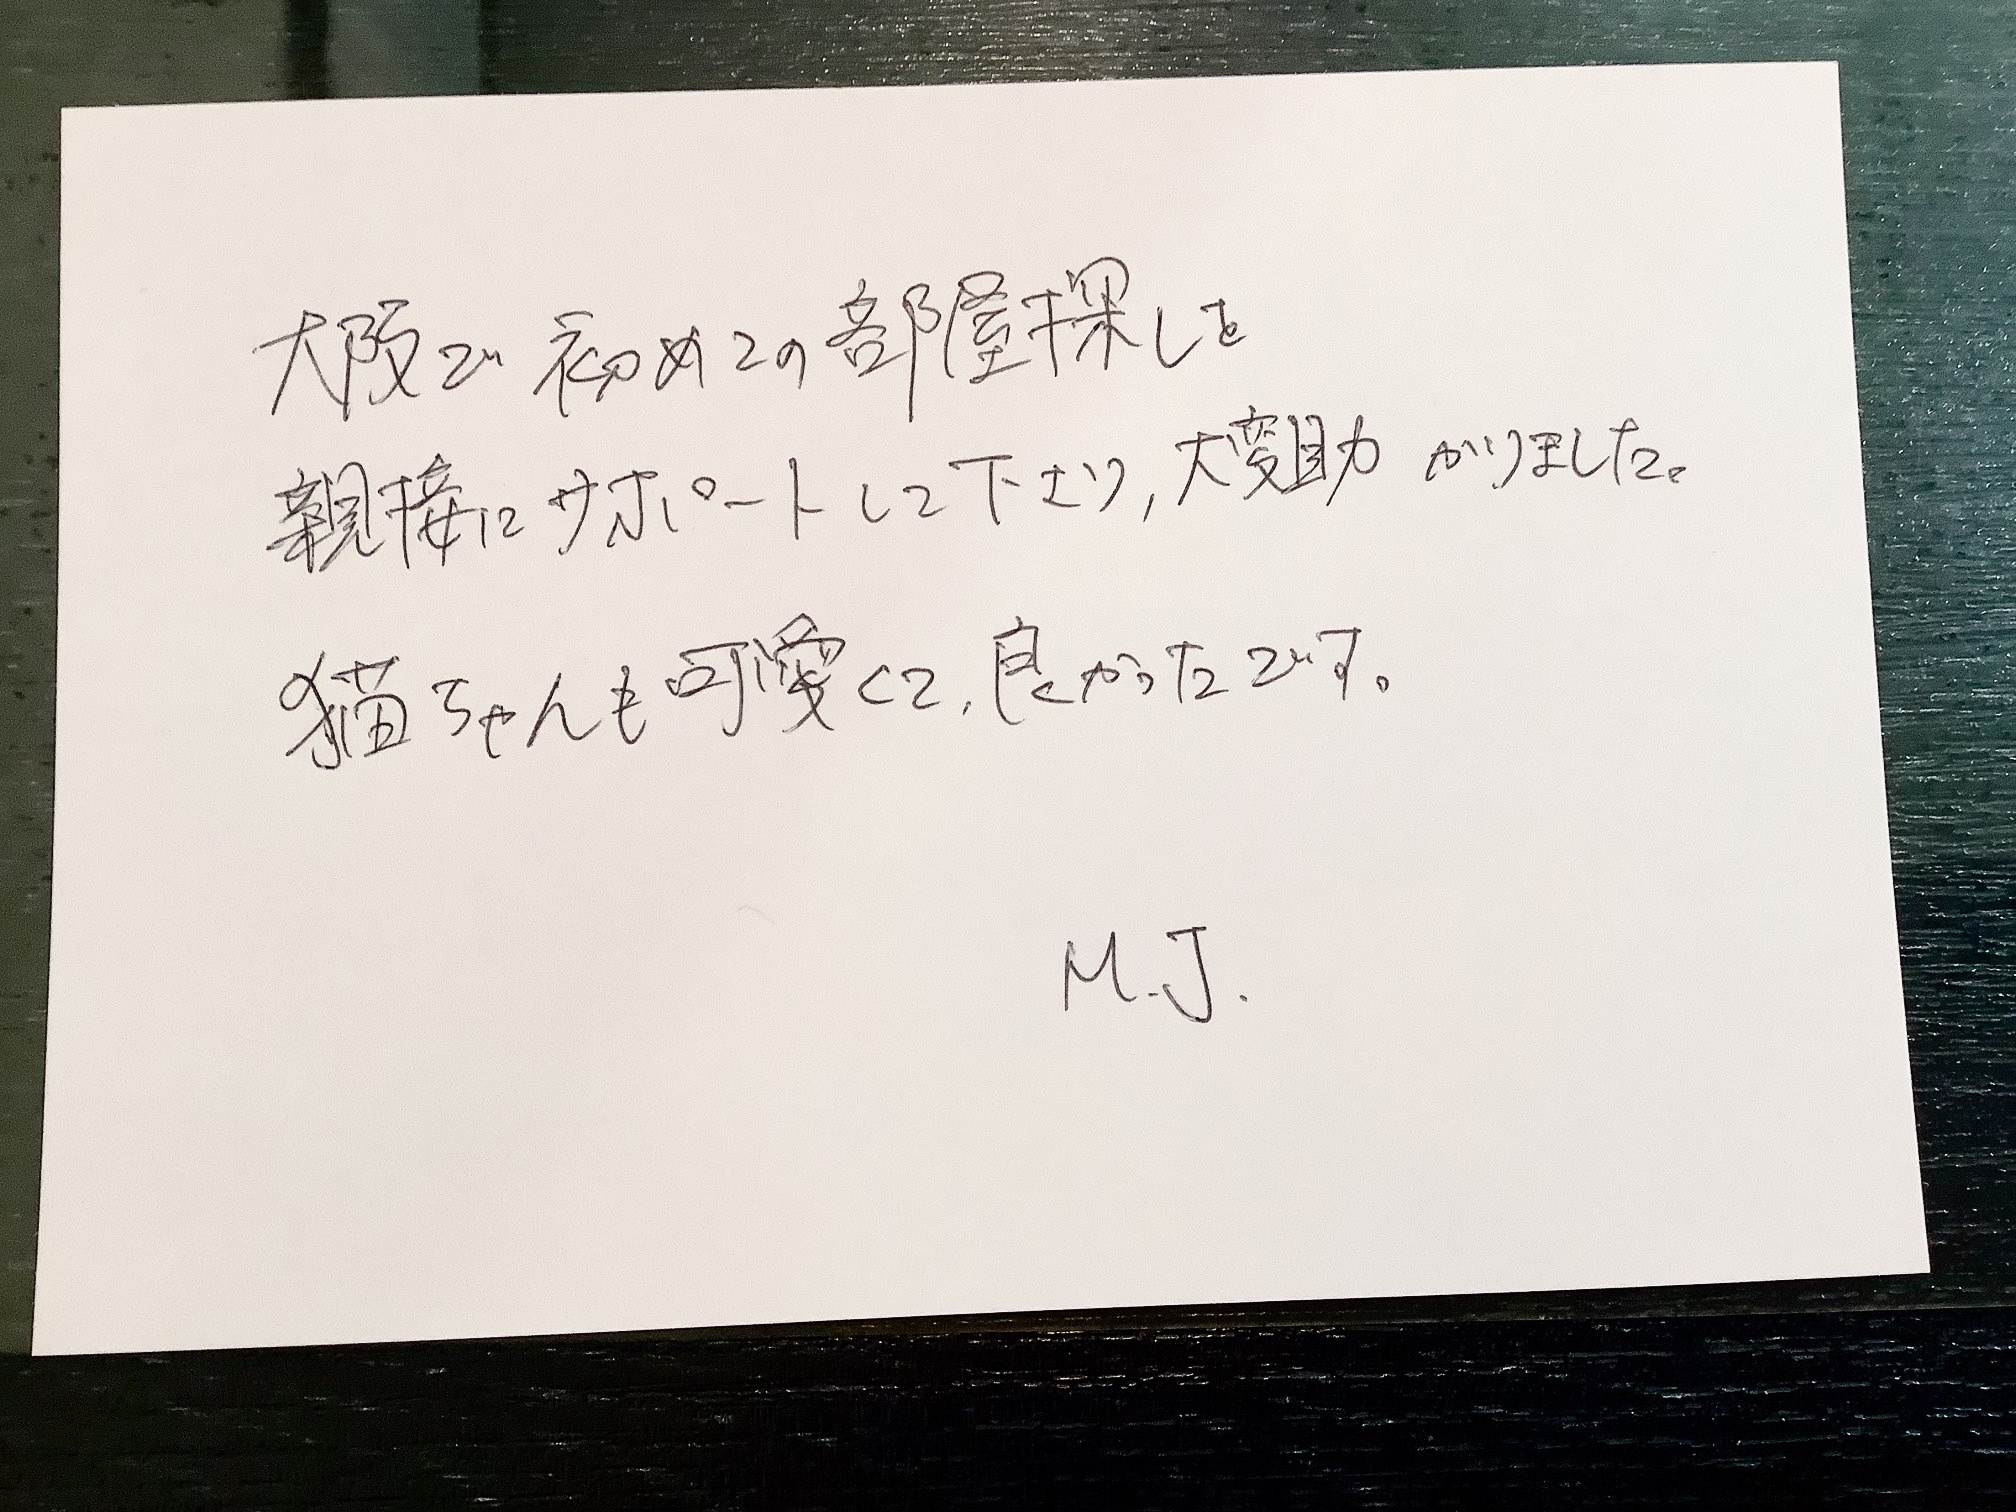 大阪で初めての部屋探しを
親接にサポートして下さり,大変助かりました。
猫ちゃんも可愛くて,良かったです。
M.J.